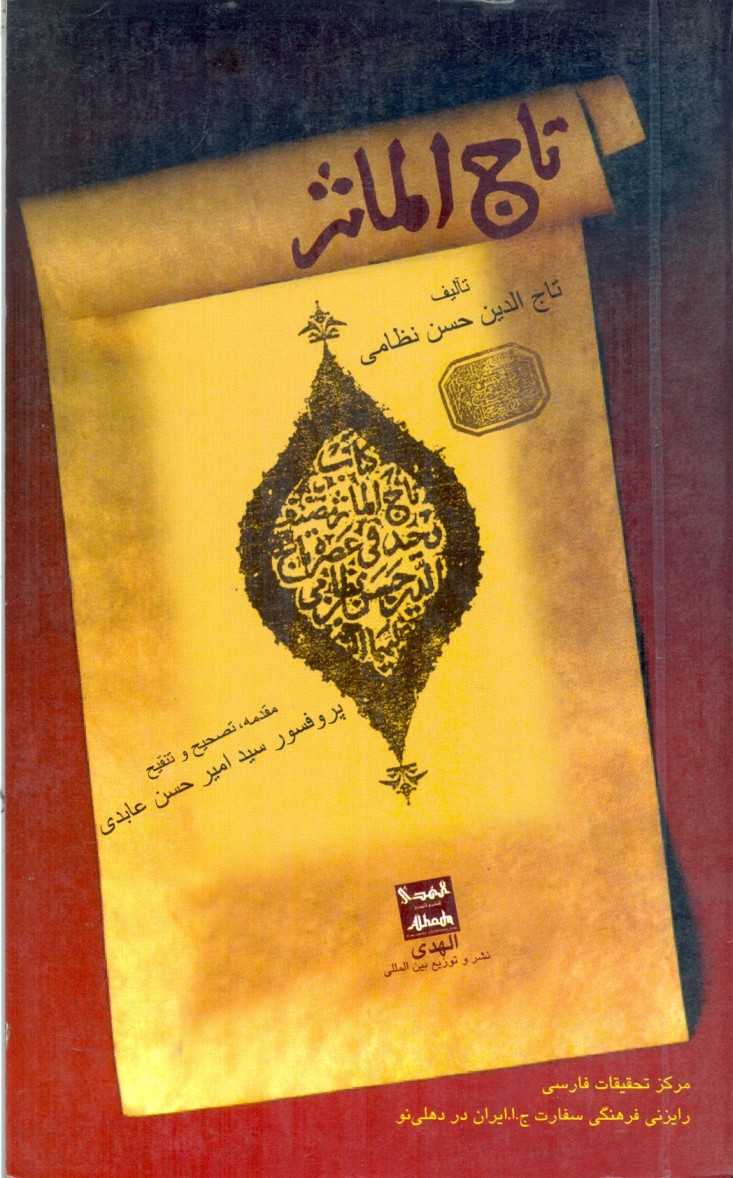 تاج المآثر
تألیف
تاج الدین حسن نظامی
کتاب
تاج المآثر تصنیف
فی عصره تاج
الدین حسن نظامی
مقدمه، تصحیح و تنقیح
پروفسور سید امیر حسن عابدی
الهدی
Alhoda
الهدی
نشر و توزیع بین المللی
مرکز تحقیقات فارسی
رایزنی فرهنگی سفارت ج.ا.ایران در دهلی‌نو